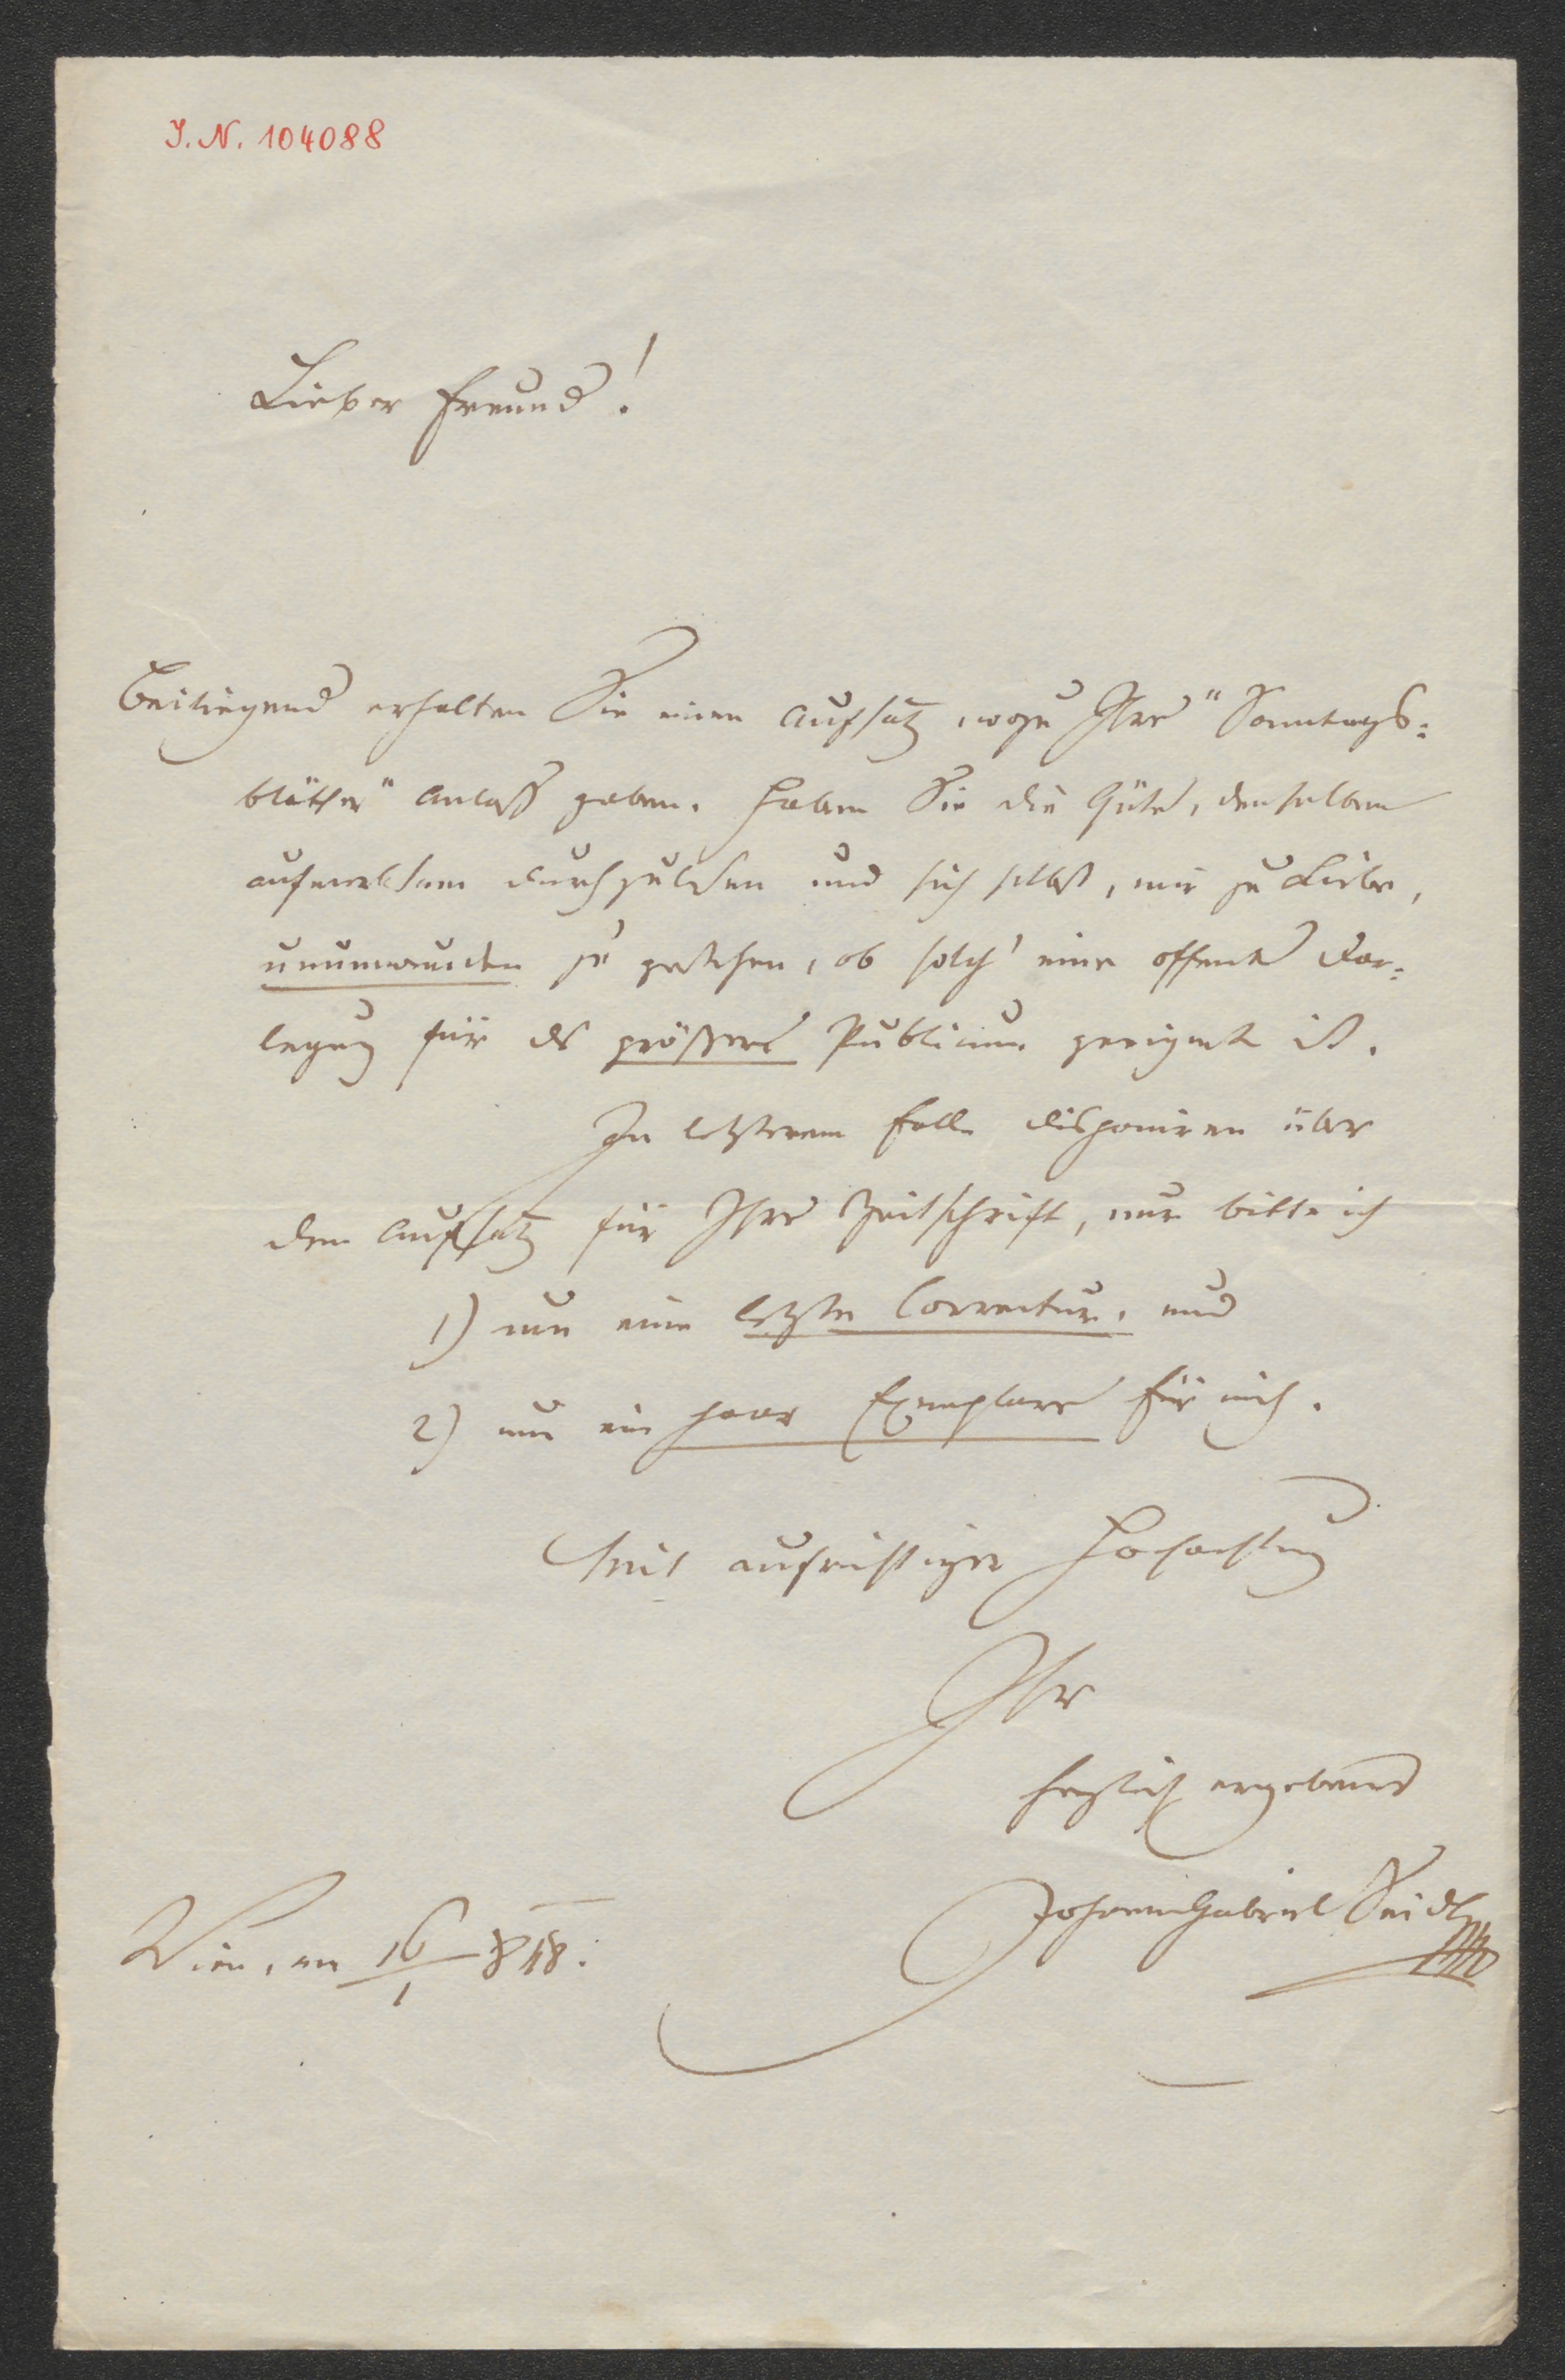 J. N. 104088
Lieber Freund!
Beiliegend erhalten Sie einen Aufsatz, wozu Ihre "Sonntags=
blätter" Anlaß gaben. Haben Sie die Güte, denselben
aufmerksam durchzulesen und sich selbst, mir zu Liebe,
unumwunden zu gestehen, ob solch' eine offene Dar=
legung für das größere Publicum geeignet ist.
In letzterem Falle disponiren über
den Aufsatz für Ihre Zeitschrift, nur bitte ich
1) um eine letzte Correctur, und
2) um ein paar Exemplare für mich.
Mit aufrichtiger Hochachtung
Ihr
herzlich ergebener
Johann Gabriel Seidl
Wien, am 16/1 848.